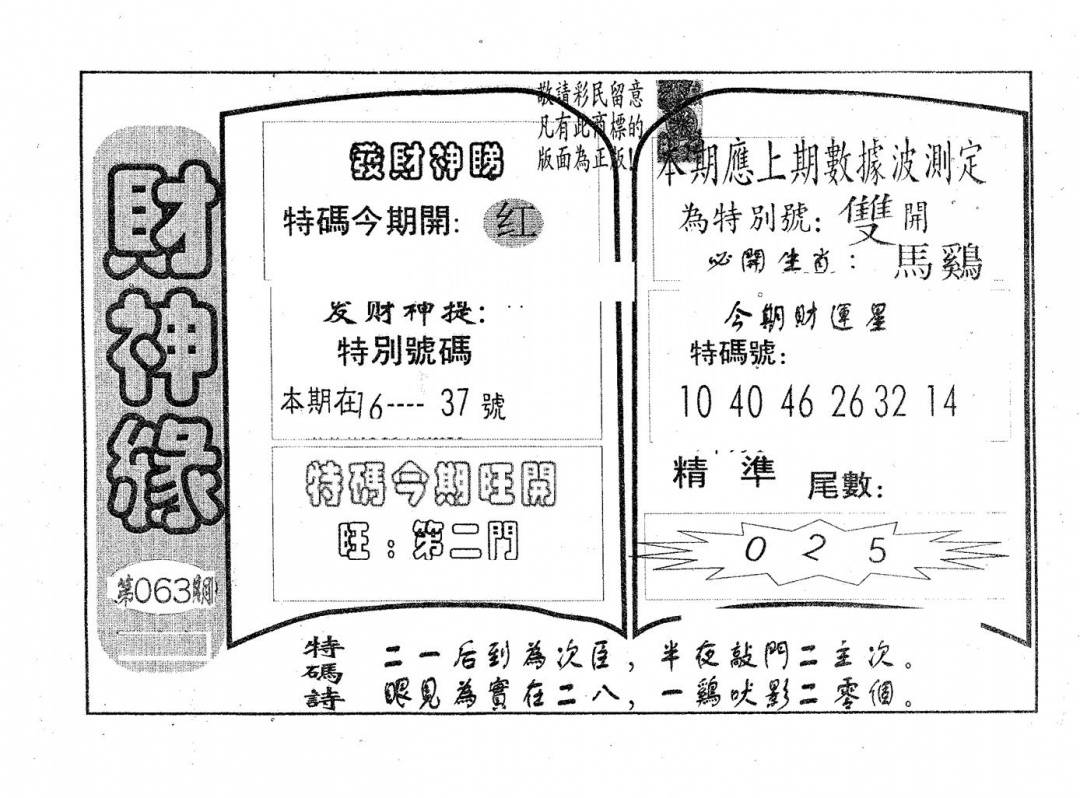 財神緣
第063期
敬請彩民留意
凡有此商標的
版面為正版!
發財神睇
特碼今期開: 红
发财神提:
特別號碼
本期在16----37號
特碼今期旺開
旺:第二門
本期應上期數據波測定
為特別號: 雙開
必開生肖: 馬鷄
今期財運星
特碼號:
10 40 46 26 32 14
精準 尾數:
0 2 5
特碼詩
二一后到為次臣,半夜敲門二主次。
眼見為實在二八,一鷄吠影二零個。